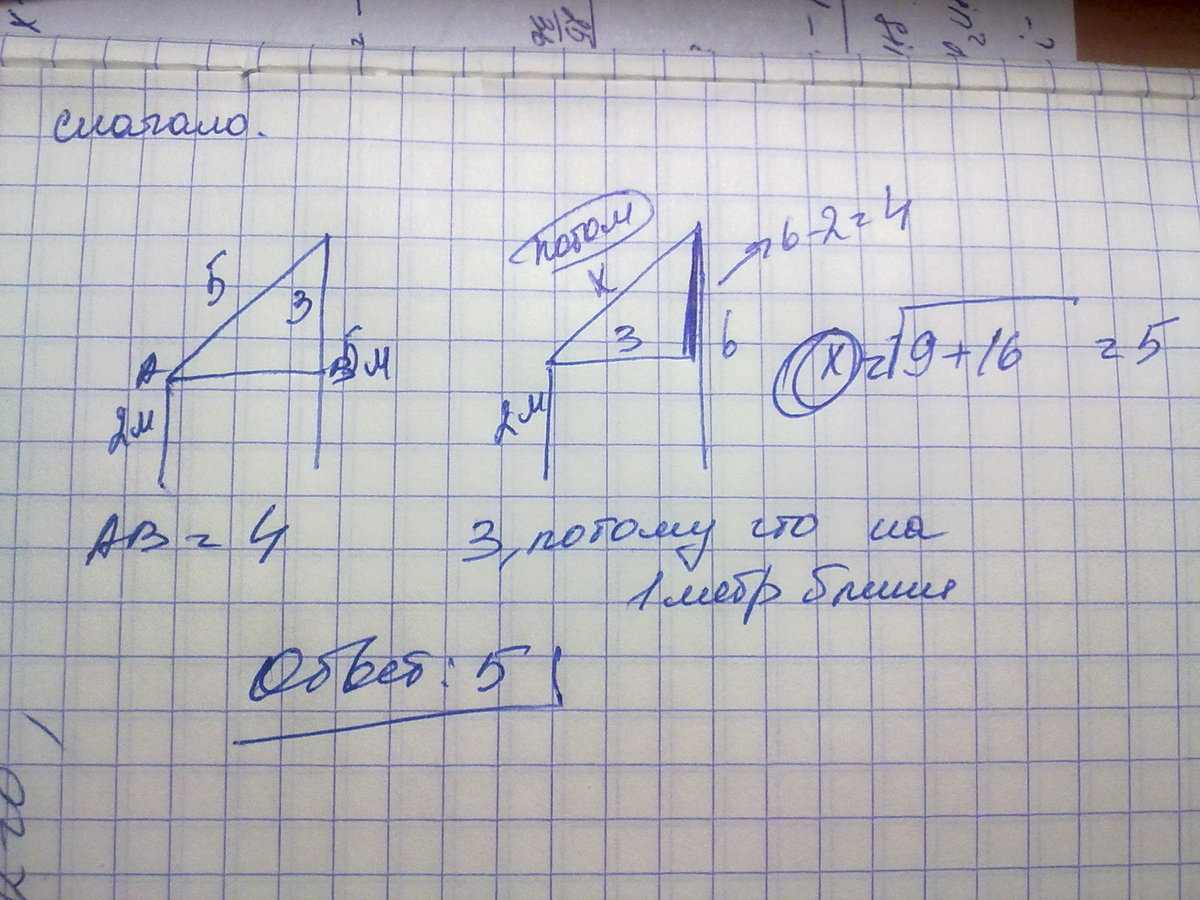 сначала.
потом
5
3
A
B
5м
2м
x
3
6
2м
6-2=4
x=√9+16 =5
AB = 4
3, потому что на
1 метр ближе
Ответ: 5